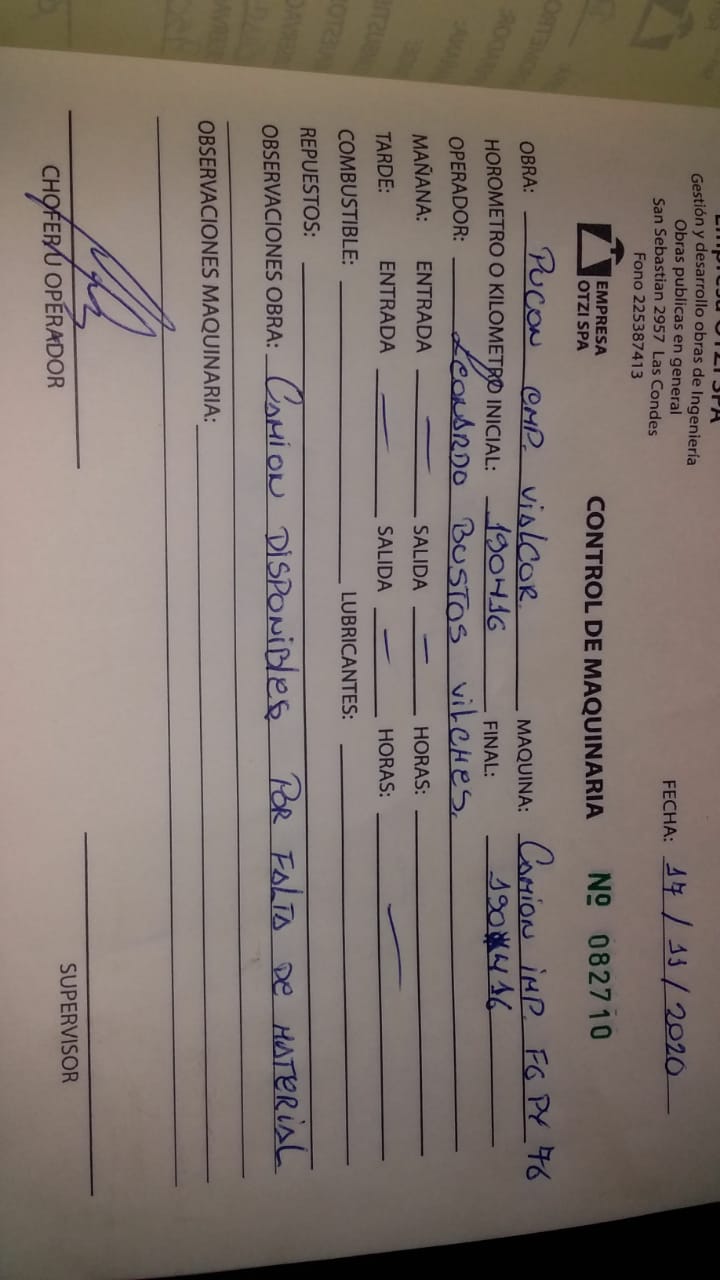 Empresa OTZI SPA
Gestión y desarrollo obras de Ingeniería
Obras publicas en general
San Sebastian 2957 Las Condes
Fono 225387413
FECHA: 17 / 11 / 2020
EMPRESA
OTZI SPA
CONTROL DE MAQUINARIA Nº 082710
OBRA: PUCON EMP. VIALCOR. MAQUINA: CAMION IMP. FG PY 76
HOROMETRO O KILOMETRO INICIAL: 190416 FINAL: 190416
OPERADOR: LEONARDO BUSTOS VILCHES.
MAÑANA: ENTRADA — SALIDA — HORAS:
TARDE: ENTRADA — SALIDA — HORAS: —
COMBUSTIBLE: LUBRICANTES:
REPUESTOS:
OBSERVACIONES OBRA: CAMION DISPONIBLES POR FALTA DE MATERIAL
OBSERVACIONES MAQUINARIA:
CHOFER U OPERADOR SUPERVISOR